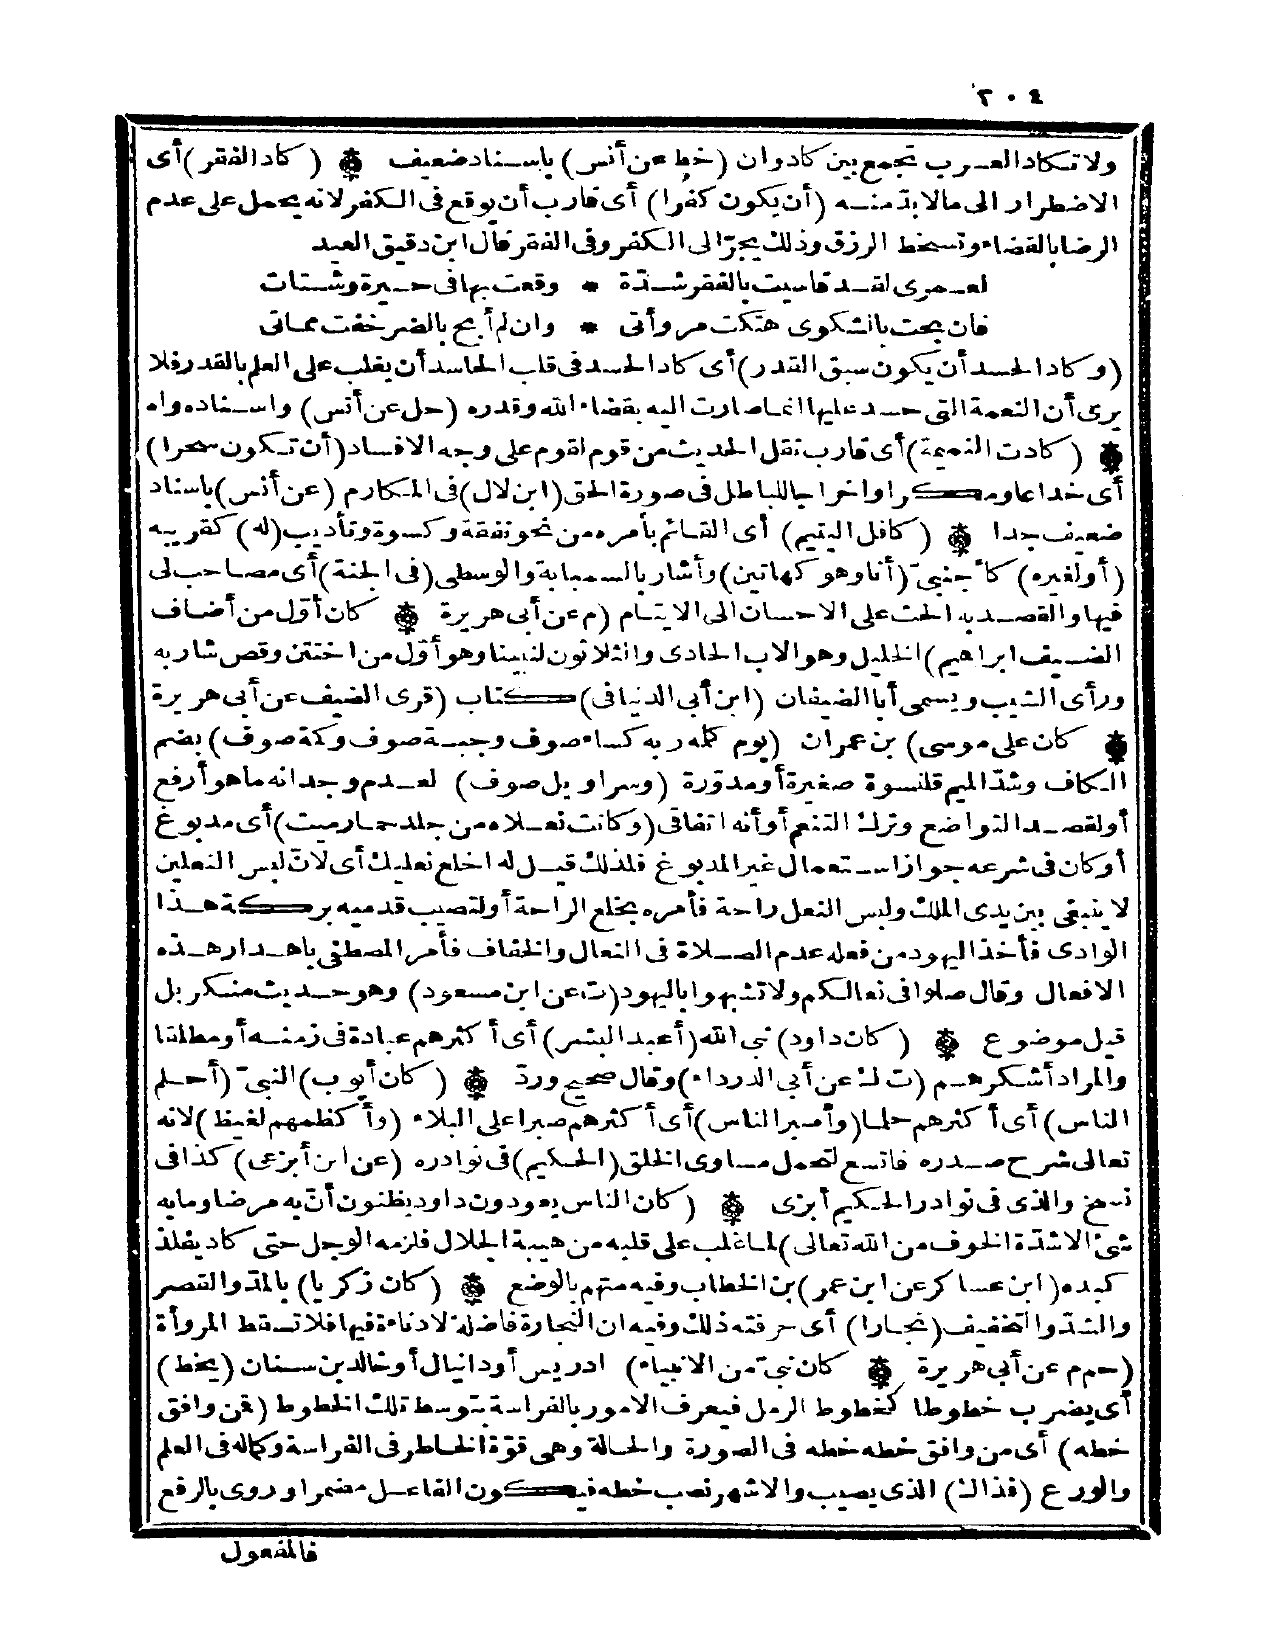 ٢٠٤
ولا تكاد العرب تجمع بين كاد وان (خط عن أنس) باسناد ضعيف ۞ (كاد الفقر) أى
الاضطرار الى ما لا بدّ منه (أن يكون كفرا) أى قارب أن يوقع فى الكفر لانه يحمل على عدم
الرضا بالقضاء وتسخط الرزق وذلك يجرّ الى الكفر وفى الفقر قال ابن دقيق العيد
لعمرى لقد قاسيت بالفقر شدّة * وقعت بها فى حيرة وشتات
فان بحت بالشكوى هتكت مروأتى * وان لم أبح بالضر خفت مماتى
(وكاد الحسد أن يكون سبق القدر) أى كاد الحسد فى قلب الحاسد أن يغلب على العلم بالقدر فلا
يرى أن النعمة التى حسد عليها انما صارت اليه بقضاء الله وقدره (حل عن أنس) واسناده واه
۞ (كادت النميمة) أى قارب نقل الحديث من قوم لقوم على وجه الافساد (أن تكون سحرا)
أى خداعا ومكرا واخراجا للباطل فى صورة الحق (ابن لال) فى المكارم (عن أنس) باسناد
ضعيف جدا ۞ (كافل اليتيم) أى القائم بأمره من نحو نفقة وكسوة وتأديب (له) كقريبه
(أو لغيره) كأجنبىّ (أنا وهو كهاتين) وأشار بالسبابة والوسطى (فى الجنة) أى مصاحب لى
فيها والقصد به الحث على الاحسان الى الايتام (م عن أبى هريرة ۞ كان أوّل من أضاف
الضيف ابراهيم) الخليل وهو الاب الحادى والثلاثون لنبينا وهو أوّل من اختتن وقص شاربه
ورأى الشيب ويسمى أبا الضيفان (ابن أبى الدنيا فى) كتاب (قرى الضيف عن أبى هريرة
۞ كان على موسى) بن عمران (يوم كلمه ربه كساء صوف وجبة صوف وكمة صوف) بضم
الكاف وشدّ الميم قلنسوة صغيرة أو مدوّرة (وسراويل صوف) لعدم وجدانه ما هو أرفع
أو لقصد التواضع وترك التنعم أو أنه اتفاقى (وكانت نعلاه من جلد حمار ميت) أى مدبوغ
أو كان فى شرعه جواز استعمال غير المدبوغ فلذلك قيل له اخلع نعليك أى لانّ لبس النعلين
لا ينبغى بين يدى الملك ولبس النعل راحة فأمره بخلع الراحة أو لتصيب قدميه بركة هذا
الوادى فأخذ اليهود من فعله عدم الصلاة فى النعال والخفاف فأمر المصطفى باهدار هذه
الافعال وقال صلوا فى نعالكم ولا تشبهوا باليهود (ت عن ابن مسعود) وهو حديث منكر بل
قيل موضوع ۞ (كان داود) نبى الله (أعبد البشر) أى أكثرهم عبادة فى زمنه أو مطلقا
والمراد أشكرهم (ت ك عن أبى الدرداء) وقال صحيح وردّ ۞ (كان أيوب) النبىّ (أحلم
الناس) أى أكثرهم حلما (وأصبر الناس) أى أكثرهم صبرا على البلاء (وأكظمهم لغيظ) لانه
تعالى شرح صدره فاتسع لتحمل مساوى الخلق (الحكيم) فى نوادره (عن ابن أبزى) كذا فى
نسخ والذى فى نوادر الحكيم أبزى ۞ (كان الناس يعودون داود يظنون أنّ به مرضا وما به
شئ الا شدّة الخوف من الله تعالى) لما غلب على قلبه من هيبة الجلال فلزمه الوجل حتى كاد يفلذ
كبده (ابن عساكر عن ابن عمر) بن الخطاب وفيه متهم بالوضع ۞ (كان زكريا) بالمدّ والقصر
والشدّ والتخفيف (نجارا) أى حرفته ذلك وفيه ان النجارة فاضلة لا دناءة فيها فلا تسقط المروأة
(حم م عن أبى هريرة ۞ كان نبىّ من الانبياء) ادريس أو دانيال أو خالد بن سنان (يخط)
أى يضرب خطوطا كخطوط الرمل فيعرف الامور بالفراسة بتوسط تلك الخطوط (فمن وافق
خطه) أى من وافق خطه خطه فى الصورة والحالة وهى قوّة الخاطر فى الفراسة وكماله فى العلم
والورع (فذاك) الذى يصيب والاشهر نصب خطه فيكون الفاعل مضمرا وروى بالرفع
فالمفعول